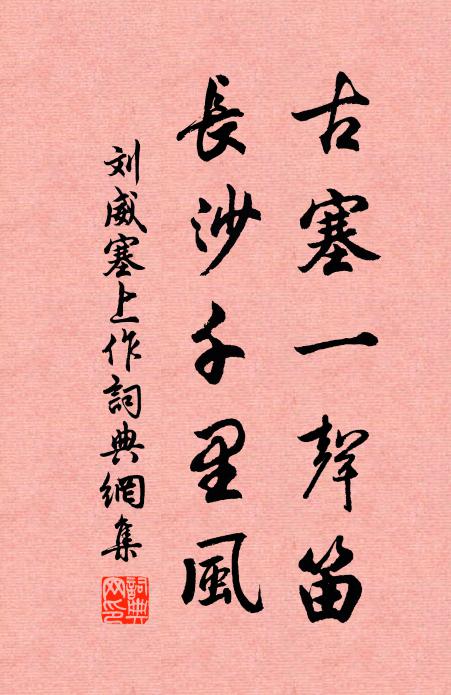 古塞一聲笛
長沙千里風
刘威塞上作詞典網集
詞典網印